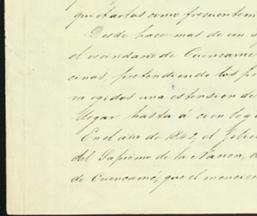 quietarlos como frecuentem
Desde hace mas de un s
el vecindario de Cuencamé
cinas, pretendiendo los pr
ra egidos una estension de
llegar hasta á cien leg
En el año de 1842, el Gobie
del Supremo de la Nacion, d
de Cuencamé, que el menciona